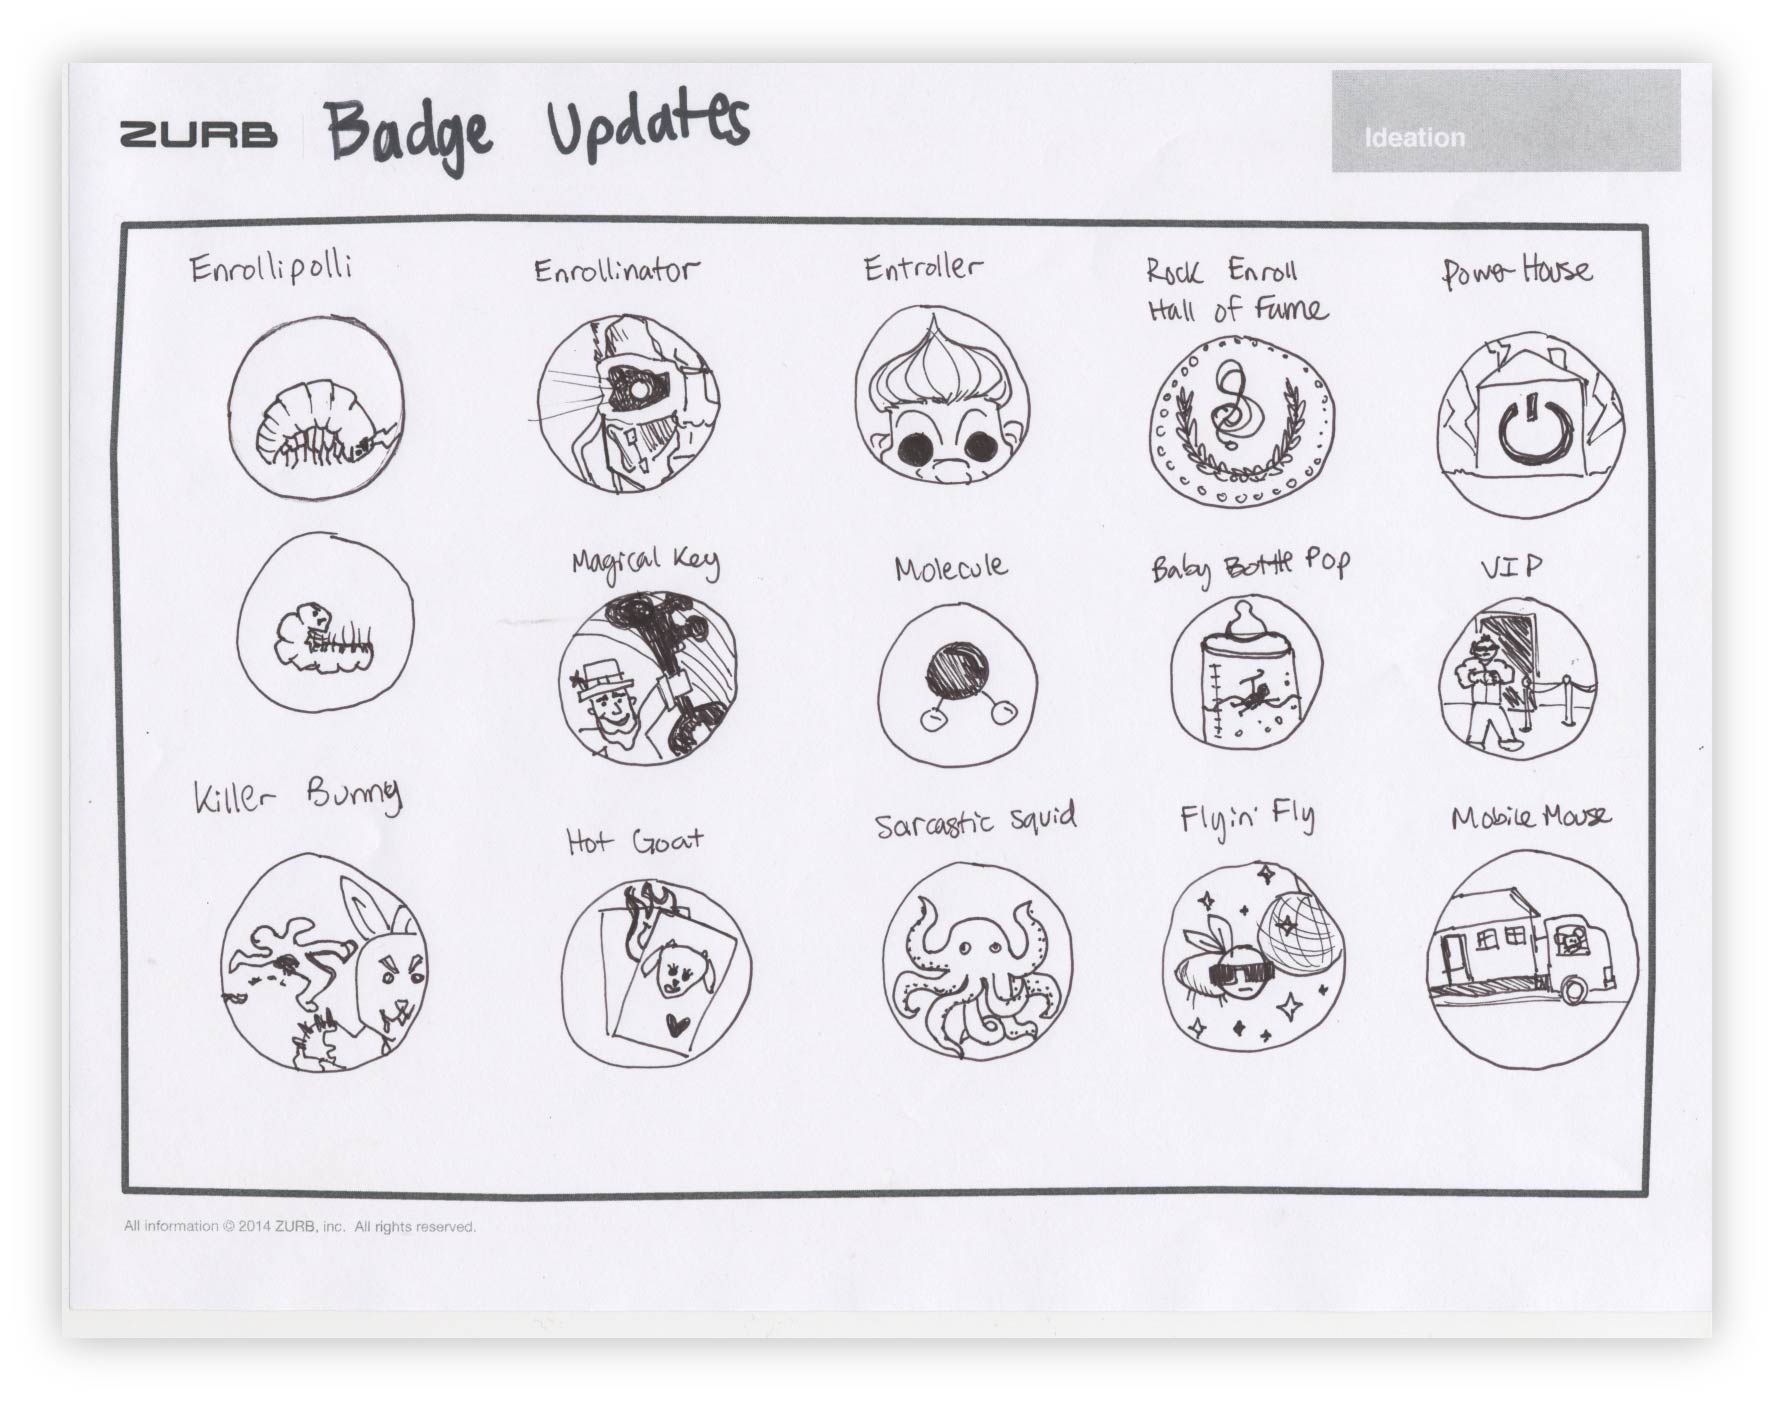 ZURB Badge Updates
Ideation
Enrollipolli
Enrollinator
Entroller
Rock Enroll
Hall of Fame
Power House
Magical Key
Molecule
Baby Bottle Pop
VIP
Killer Bunny
Hot Goat
Sarcastic Squid
Flyin' Fly
Mobile Mouse
All information © 2014 ZURB, inc. All rights reserved.